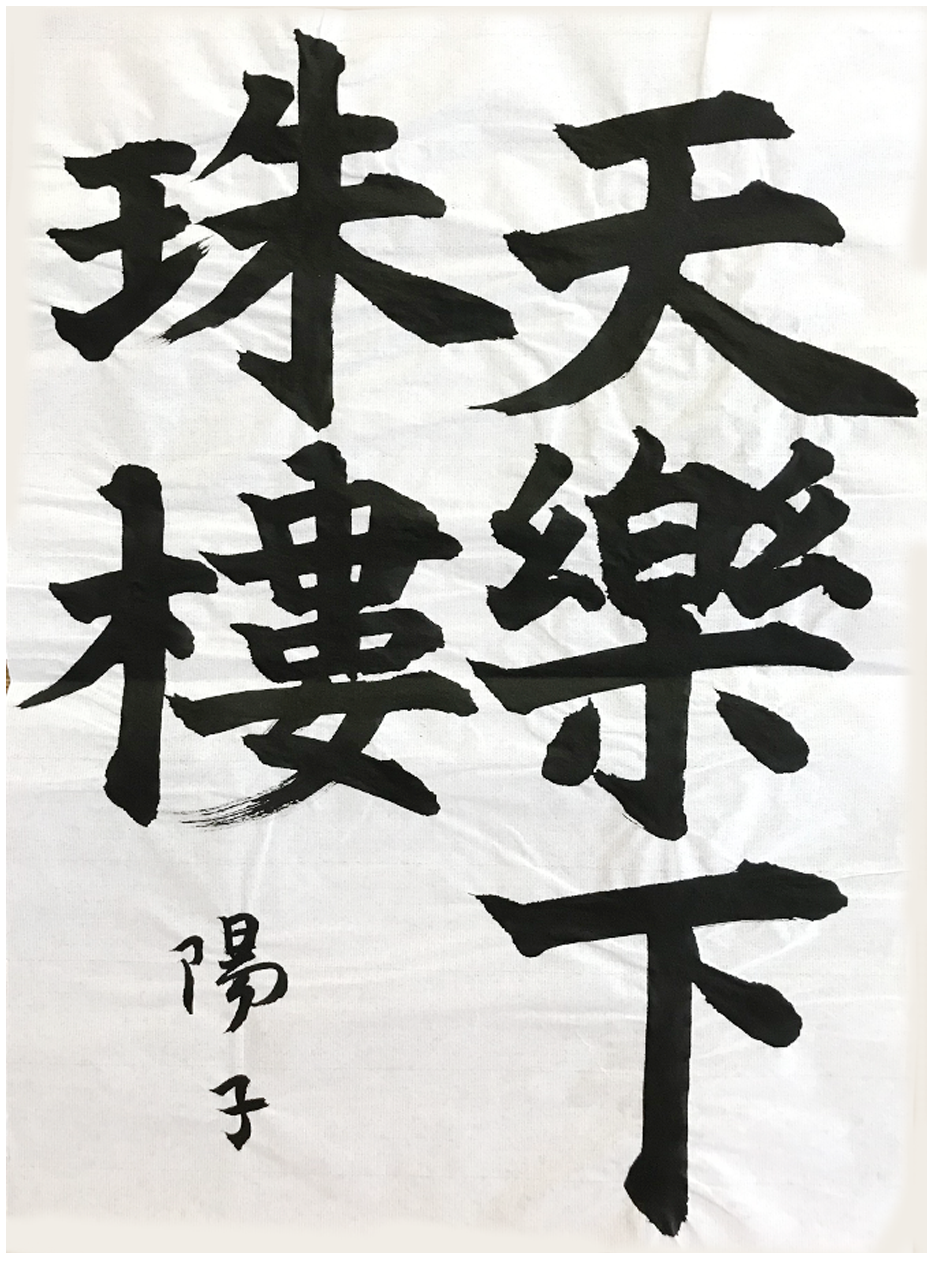 天樂下
珠樓
陽子